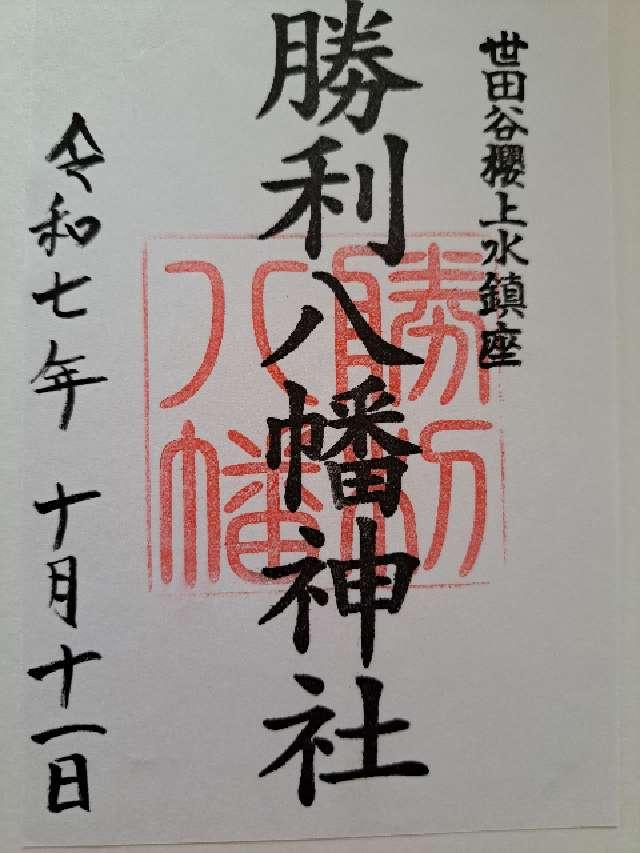 世田谷櫻上水鎮座
勝利八幡神社
勝利
八幡
令和七年 十月十一日